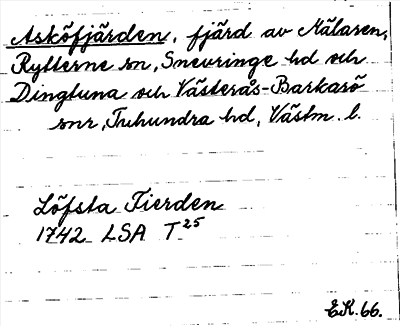 Asköfjärden, fjärd av Mälaren,
Rytterne sn, Snevringe hd och
Dingtuna och Västerås-Barkarö
snr, Tuhundra hd, Västm. l.
Löfsta Fierden
1742 LSA T25
E.K. 66.